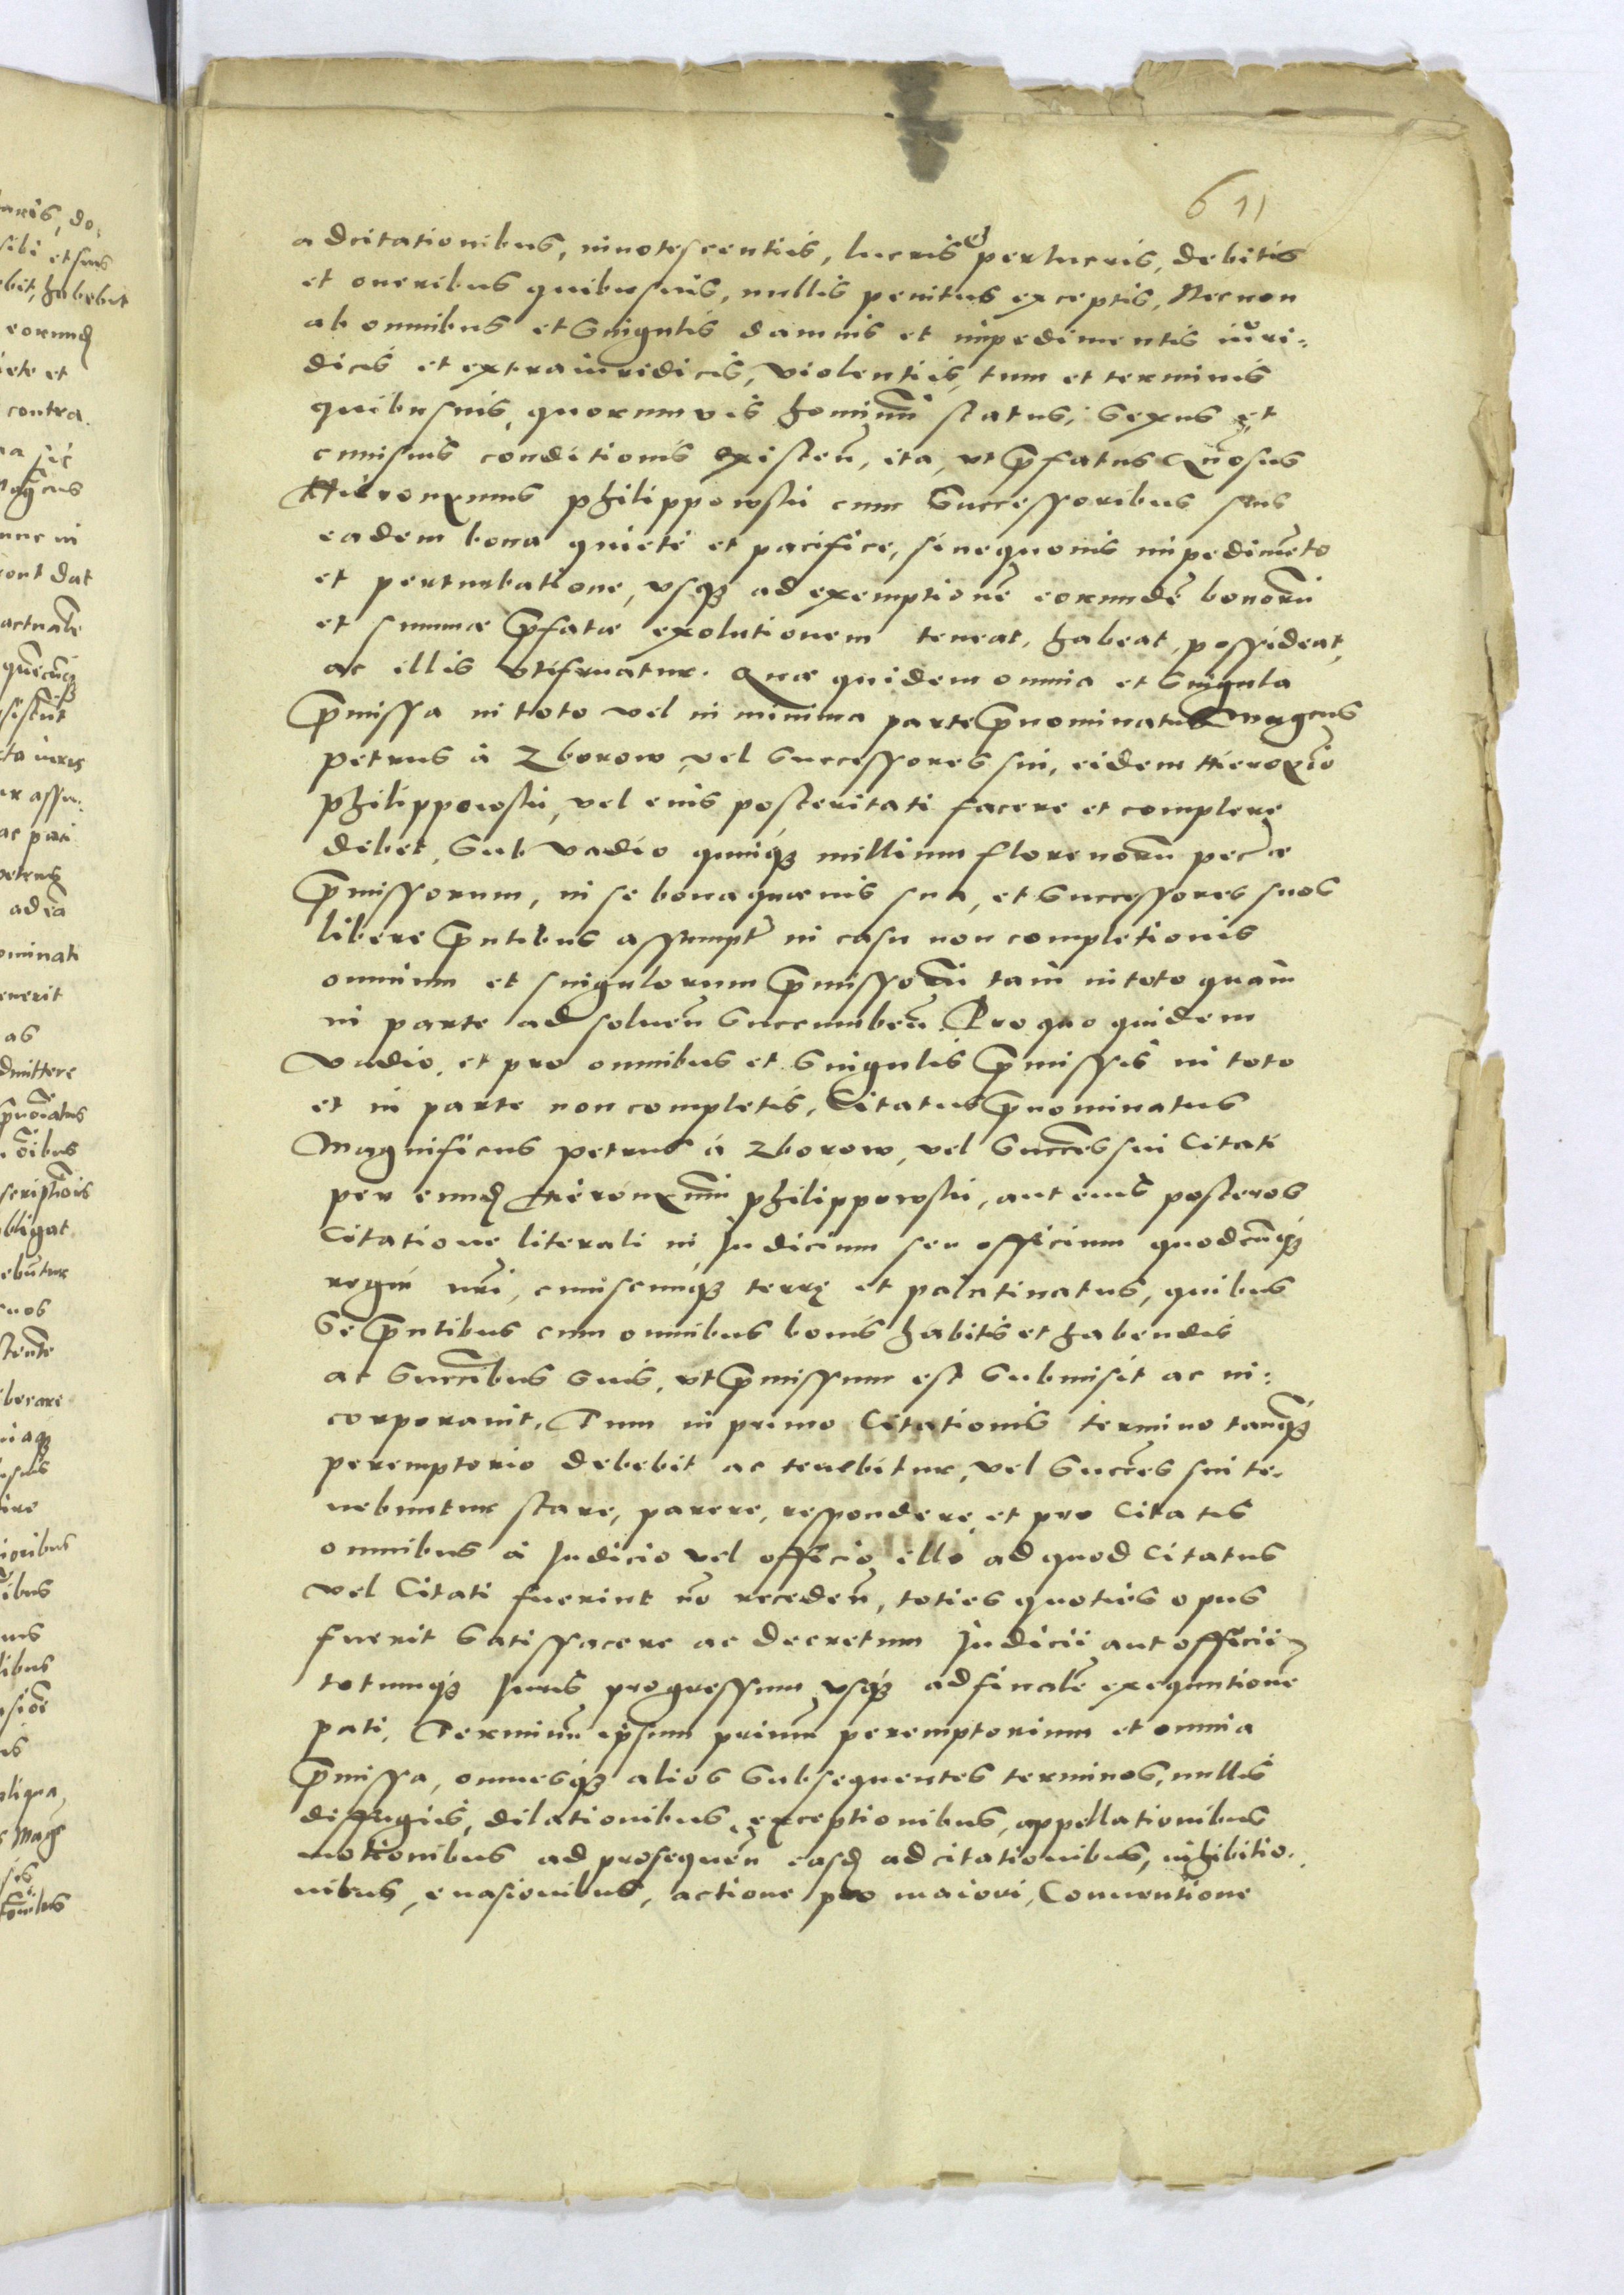 611
adcitationibus, innotescentiis, lucris et perlucris, debitis
et oneribus quibusuis, nullis penitus exceptis, Necnon
ab omnibus et Singulis damnis et impedimentis iuri=
dicis et extraiuridicis, violentiis, tum et terminis
quibusuis, quorumvis hominũ status, Sexus et
cuiusuis conditionis existeñ, ita, vt p̃fatus Gñosus
Hieronymus philippowskij cum Successoribus suis
eadem bona quiete et pacifice, sinequouis impedimẽto
et perturbatione, vsq3 ad exemptionẽ eorundẽ bonorũ
et summæ p̃fatæ exolutionem teneat, habeat, possideat,
ac illis vtifruatur. Quæ quidem omnia et Singula
p̃missa in toto vel in minima parte p̃nominatus Magcus
Petrus à Zborow, vel Successores sui, eidem Hieronỹo
Philippowskij, vel eius posteritati facere et complere
debet, Sub vadio quinq3 millium florenorũ pecuæ
p̃missorum, in se bonaquæuis sua, et Successores suos
libere p̃ntibus assumpt̃ in casu non completionis
omnium et singulorum p̃missorũ tam in toto quam
in parte ad solueñ Succumbeñ. Pro quo quidem
Vadio, et pro omnibus et Singulis p̃missis in toto
et in parte non completis, Citatus p̃nominatus
Magnificus Petrus à Zborow, vel Succẽs sui Citati
per eund Hieronymũ philippowskij, aut eius posteros
Citatione literali in Judicium seu officium quodcũq3
regni nr̃i, cuiuscunq3 terrę et palatinatus, quibus
Se p̃ntibus cum omnibus bonis habitis et habendis
ac Succr̃ibus Suis, vt p̃missum est Submisit ac in:
corporauit, Tum in primo Citationis termino tanq̃3
peremptorio debebit ac tenebitur, vel Succẽs sui te,
nebuntur stare, parere, respondere, et pro Citatis
omnibus à Judicio vel officio illo ad quod Citatus
vel Citati fuerint nõ recedeñ, toties quoties opus
fuerit Satisfacere ac decretum Judicii aut officii
totumq3 Juris progressum vsq3 ad finalẽ exequutionẽ
pati. Terminũ ipsum primũ peremptorium et omnia
p̃missa, omnesq3 alios Subsequentes terminos, nullis
diffugiis, dilationibus, exceptionibus, appellationibus
motionibus ad prosequeñ easd adcitationibus, inhibitio,
nibus, euasionibus, actione pro maiori, Conuentione